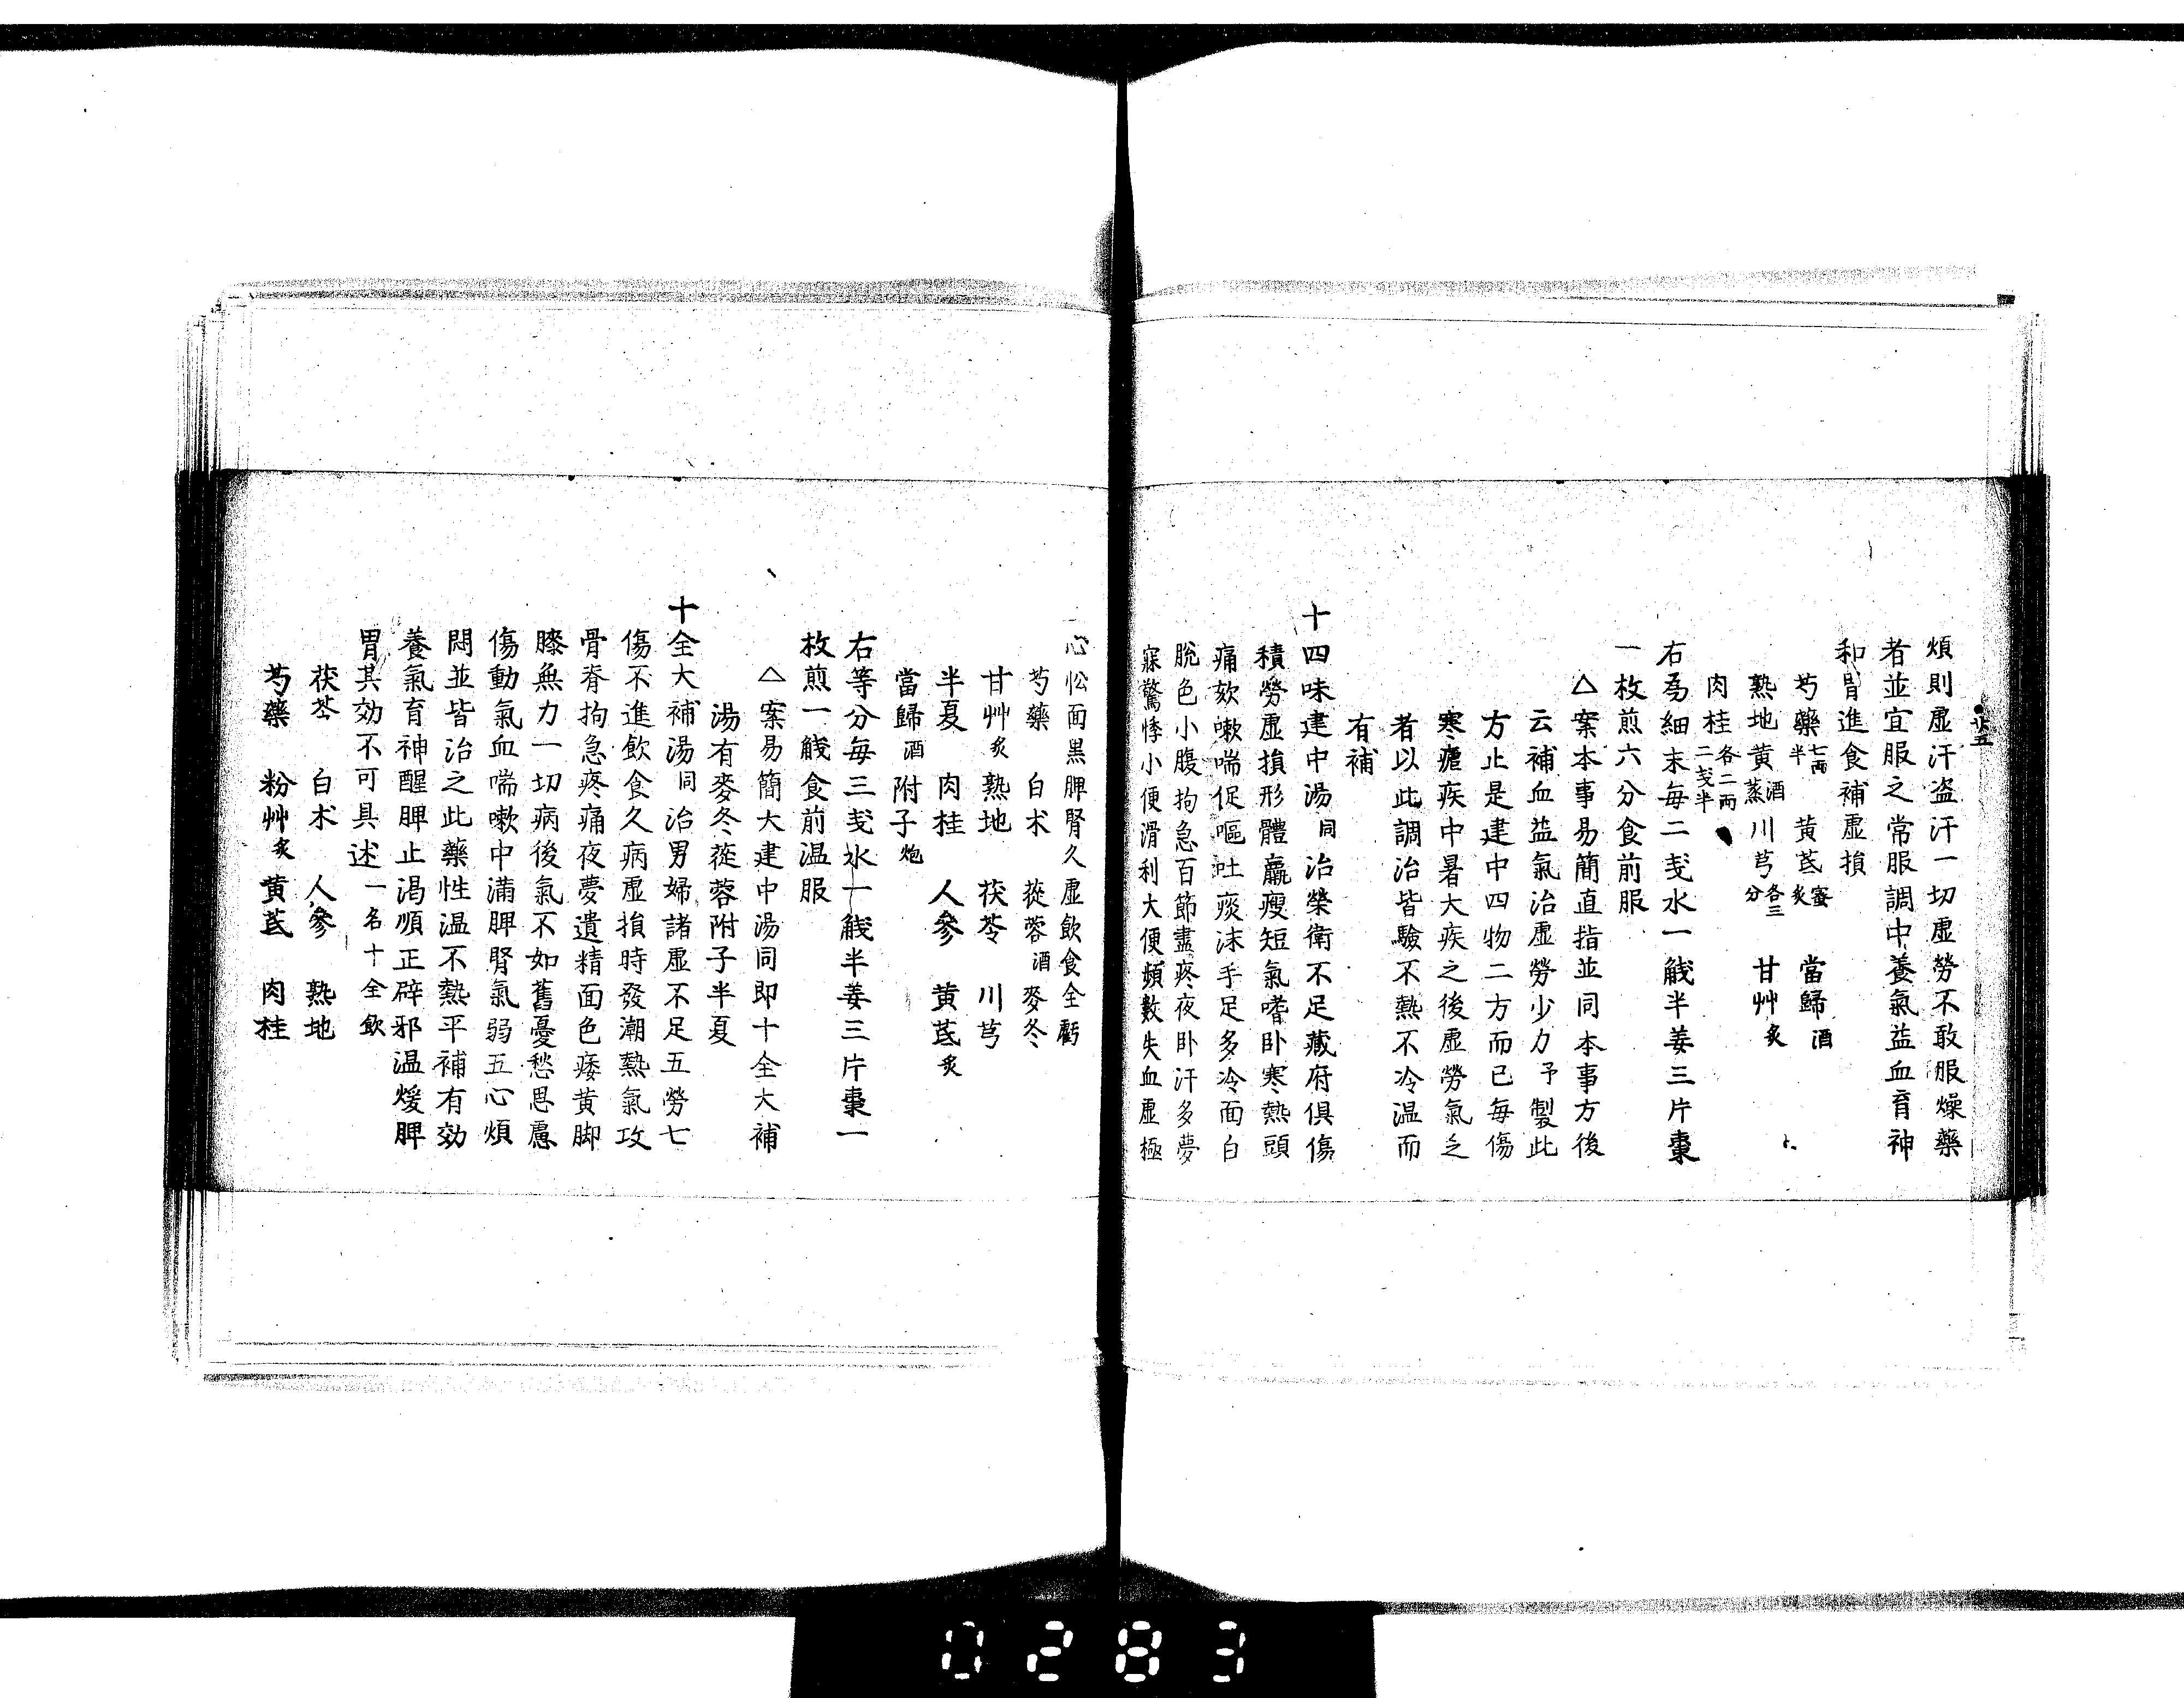 廿五
煩則虛汗盗汗一切虛勞不敢服燥藥
者並宜服之常服調中養氣益血育神
和胃進食補虛損
芍藥七両半 黄芪蜜炙 當歸酒
熟地黄酒蒸 川芎各三分 甘艸炙
肉桂各二両二戔半
右為細末毎二戔水一盞半姜三片棗
一枚煎六分食前服
△案本事易簡直指並同本事方後
云補血益氣治虛勞少力予製此
方止是建中四物二方而已毎傷
寒瘧疾中暑大疾之後虛勞氣乏
者以此調治皆驗不熱不冷温而
有補
十四味建中湯同治榮衛不足藏府倶傷
積勞虛損形體羸瘦短氣嗜卧寒熱頭
痛欬嗽喘促嘔吐痰沫手足多冷面白
脫色小腹拘急百節盡疼夜卧汗多夢
寐驚悸小便滑利大便頻數失血虛極
心忪面黒脾腎久虛飲食全虧
芍藥 白朮 蓯蓉酒 麥冬
甘艸炙 熟地 茯苓 川芎
半夏 肉桂 人參 黄芪炙
當歸酒 附子炮
右等分毎三戔水一盞半姜三片棗一
枚煎一盞食前温服
△案易簡大建中湯同即十全大補
湯有麥冬蓯蓉附子半夏
十全大補湯同治男婦諸虛不足五勞七
傷不進飲食久病虛損時發潮熱氣攻
骨脊拘急疼痛夜夢遺精面色痿黄脚
膝無力一切病後氣不如舊憂愁思慮
傷動氣血喘嗽中滿脾腎氣弱五心煩
悶並皆治之此藥性温不熱平補有効
養氣育神醒脾止渴順正辟邪温煖脾
胃其効不可具述一名十全飲
茯苓 白朮 人參 熟地
芍藥 粉艸炙 黄芪 肉桂
0283